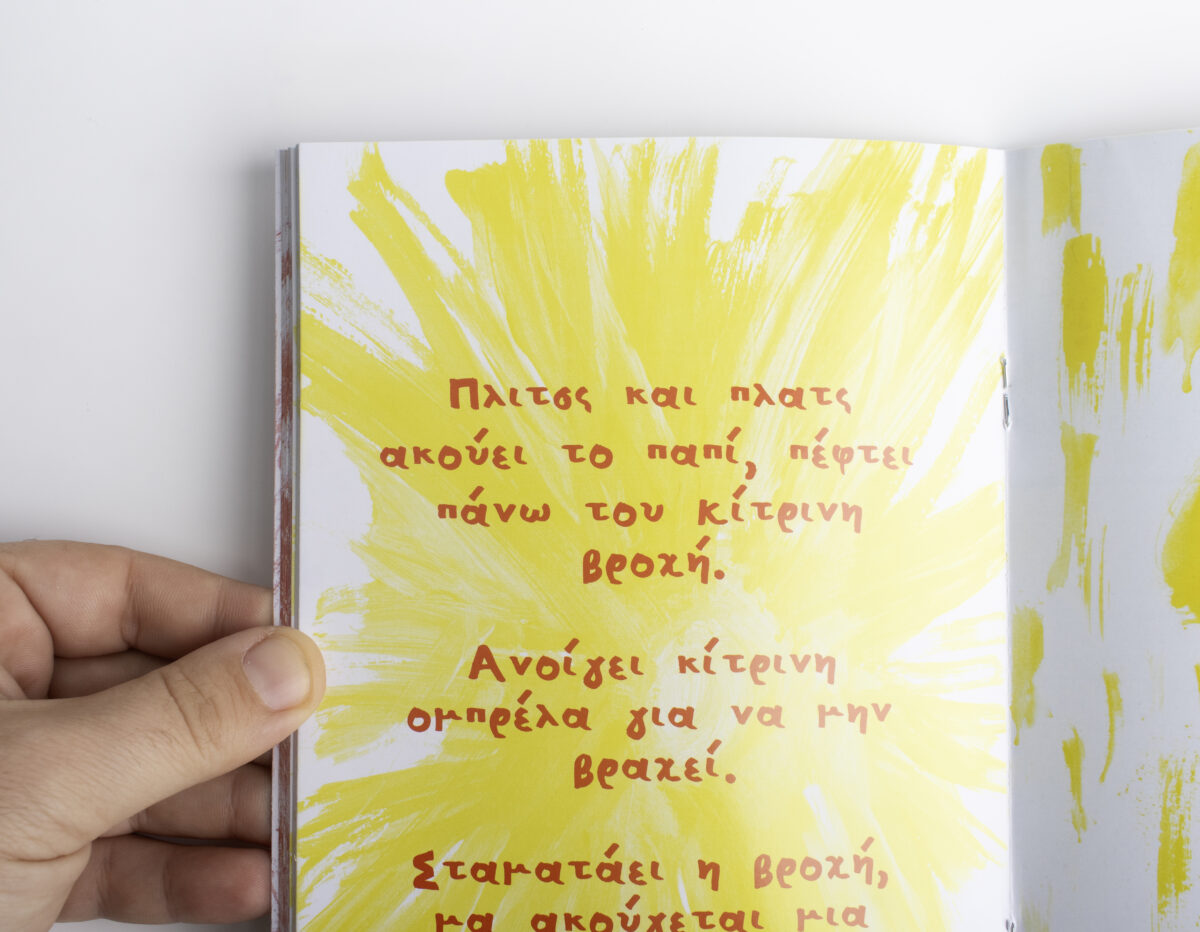 Πλιτσς και πλατς
ακούει το παπί, πέφτει
πάνω του κίτρινη
βροχή.
Ανοίγει κίτρινη
ομπρέλα για να μην
βραχεί.
Σταματάει η βροχή,
μα ακούγεται μια